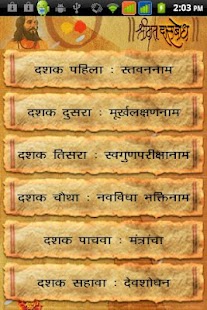 2:03 PM
श्रीमत् दासबोध
दशक पहिला : स्तवननाम
दशक दुसरा : मूर्खलक्षणनाम
दशक तिसरा : स्वगुणपरीक्षानाम
दशक चौथा : नवविधा भक्तिनाम
दशक पाचवा : मंत्रांचा
दशक सहावा : देवशोधन